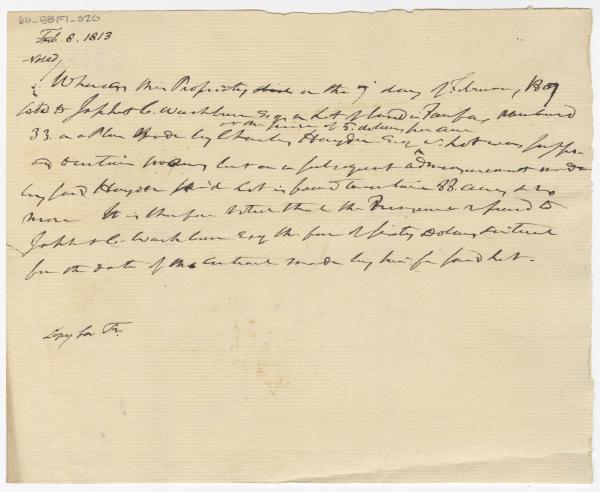 66-BBF1-020
Feb. 8. 1813
Voted/
Whereas this Propriety did on the 7 day of February 1809
sold to Japhet C. Washburn Esq. a lot of land in Fairfax numberd
at the price of 5 dolars per acre
33. on a Plan made by Charles Hayden Esq. lot was suppos
ed contain acres but on a subsequent admeasurement made
by said Hayden said lot is found contain 88 acres & no
more It is therefore Voted that the Treasurer refund to
Japhet C. Washburn Esq the sum of sixty Dolars Interest
for the date of the contract made by him for said lot.
Copy for Tr.